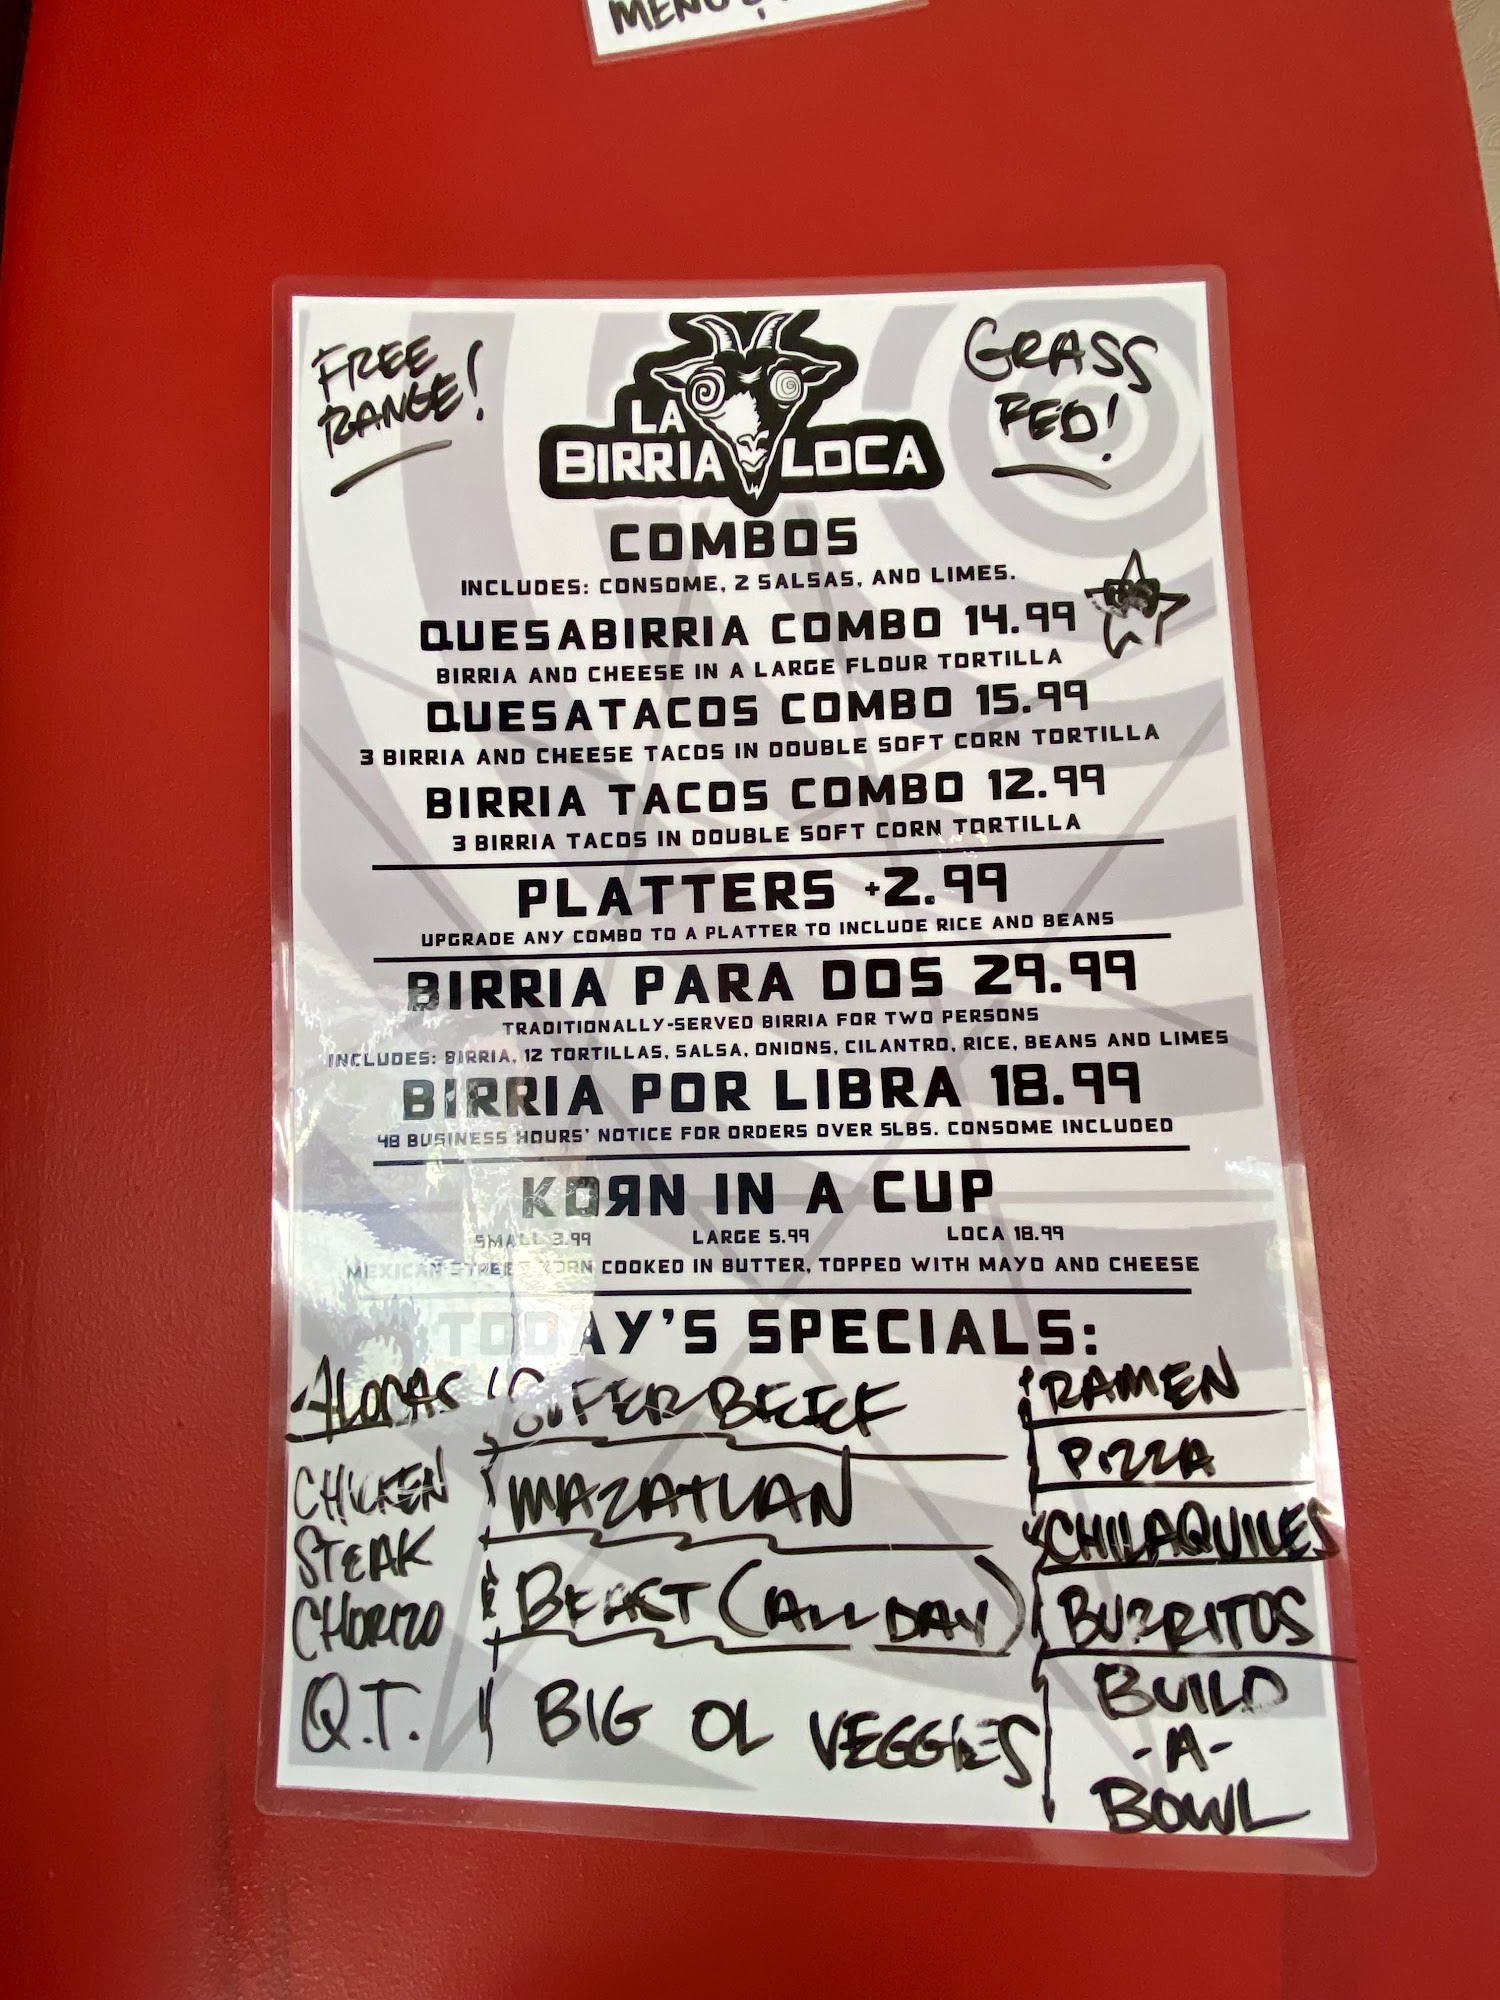 MENU
FREE
RANGE!
GRASS
FED!
LA
BIRRIA LOCA
COMBOS
INCLUDES: CONSOME, 2 SALSAS, AND LIMES.
QUESABIRRIA COMBO 14.99
BIRRIA AND CHEESE IN A LARGE FLOUR TORTILLA
QUESATACOS COMBO 15.99
3 BIRRIA AND CHEESE TACOS IN DOUBLE SOFT CORN TORTILLA
BIRRIA TACOS COMBO 12.99
3 BIRRIA TACOS IN DOUBLE SOFT CORN TORTILLA
PLATTERS +2.99
UPGRADE ANY COMBO TO A PLATTER TO INCLUDE RICE AND BEANS
BIRRIA PARA DOS 29.99
TRADITIONALLY-SERVED BIRRIA FOR TWO PERSONS
INCLUDES: BIRRIA, 12 TORTILLAS, SALSA, ONIONS, CILANTRO, RICE, BEANS AND LIMES
BIRRIA POR LIBRA 18.99
48 BUSINESS HOURS' NOTICE FOR ORDERS OVER 5LBS. CONSOME INCLUDED
KOЯN IN A CUP
SMALL 3.99 LARGE 5.99 LOCA 18.99
MEXICAN STREET KORN COOKED IN BUTTER, TOPPED WITH MAYO AND CHEESE
TODAY'S SPECIALS:
CHICKEN
STEAK
CHORIZO
Q.T.
BEEF
MAZATLAN
BEAST (ALL DAY)
BIG OL VEGGIES
RAMEN
PIZZA
CHILAQUILES
BURRITOS
BUILD
-A-
BOWL